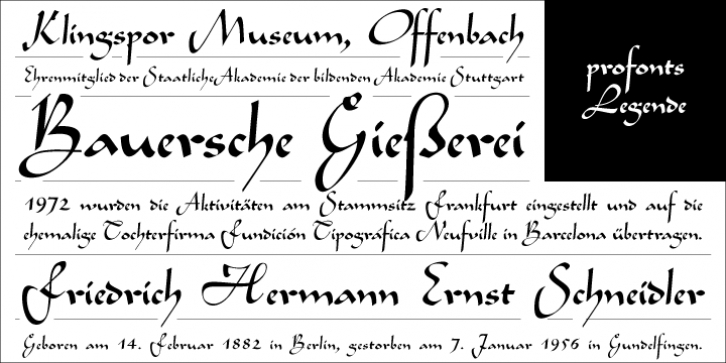 Klingspor Museum, Offenbach
Ehrenmitglied der Staatliche Akademie der bildenden Akademie Stuttgart
Bauersche Gießerei
1972 wurden die Aktivitäten am Stammsitz Frankfurt eingestellt und auf die
ehemalige Tochterfirma Fundición Tipográfica Neufville in Barcelona übertragen.
Friedrich Hermann Ernst Schneidler
Geboren am 14. Februar 1882 in Berlin, gestorben am 7. Januar 1956 in Gundelfingen.
profonts
Legende